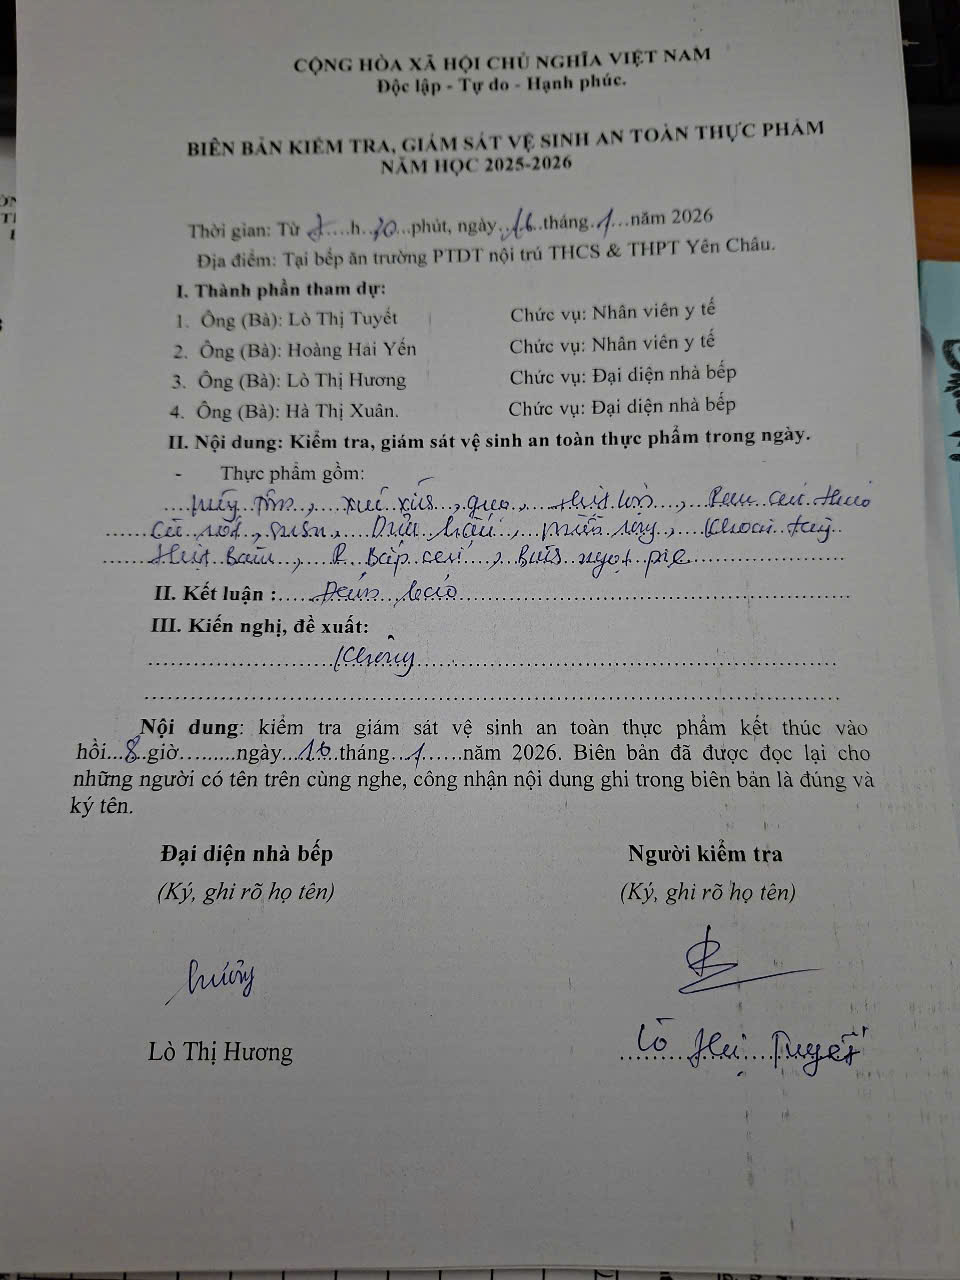 CỘNG HÒA XÃ HỘI CHỦ NGHĨA VIỆT NAM
Độc lập - Tự do - Hạnh phúc.
BIÊN BẢN KIỂM TRA, GIÁM SÁT VỆ SINH AN TOÀN THỰC PHẨM
NĂM HỌC 2025-2026
Thời gian: Từ 7....h.30...phút, ngày..16..tháng..1....năm 2026
Địa điểm: Tại bếp ăn trường PTDT nội trú THCS & THPT Yên Châu.
I. Thành phần tham dự:
1. Ông (Bà): Lò Thị Tuyết Chức vụ: Nhân viên y tế
2. Ông (Bà): Hoàng Hải Yến Chức vụ: Nhân viên y tế
3. Ông (Bà): Lò Thị Hương Chức vụ: Đại diện nhà bếp
4. Ông (Bà): Hà Thị Xuân. Chức vụ: Đại diện nhà bếp
II. Nội dung: Kiểm tra, giám sát vệ sinh an toàn thực phẩm trong ngày.
- Thực phẩm gồm:
mỳ tôm, xúc xích, thịt lợn, Rau
Khoai tây
R Bắp cải
II. Kết luận :.....Đảm bảo
III. Kiến nghị, đề xuất:
Không
Nội dung: kiểm tra giám sát vệ sinh an toàn thực phẩm kết thúc vào
hồi...8.giờ.........ngày..16.tháng..1......năm 2026. Biên bản đã được đọc lại cho
những người có tên trên cùng nghe, công nhận nội dung ghi trong biên bản là đúng và
ký tên.
Đại diện nhà bếp Người kiểm tra
(Ký, ghi rõ họ tên) (Ký, ghi rõ họ tên)
Hương
Lò Thị Hương Lò Thị Tuyết